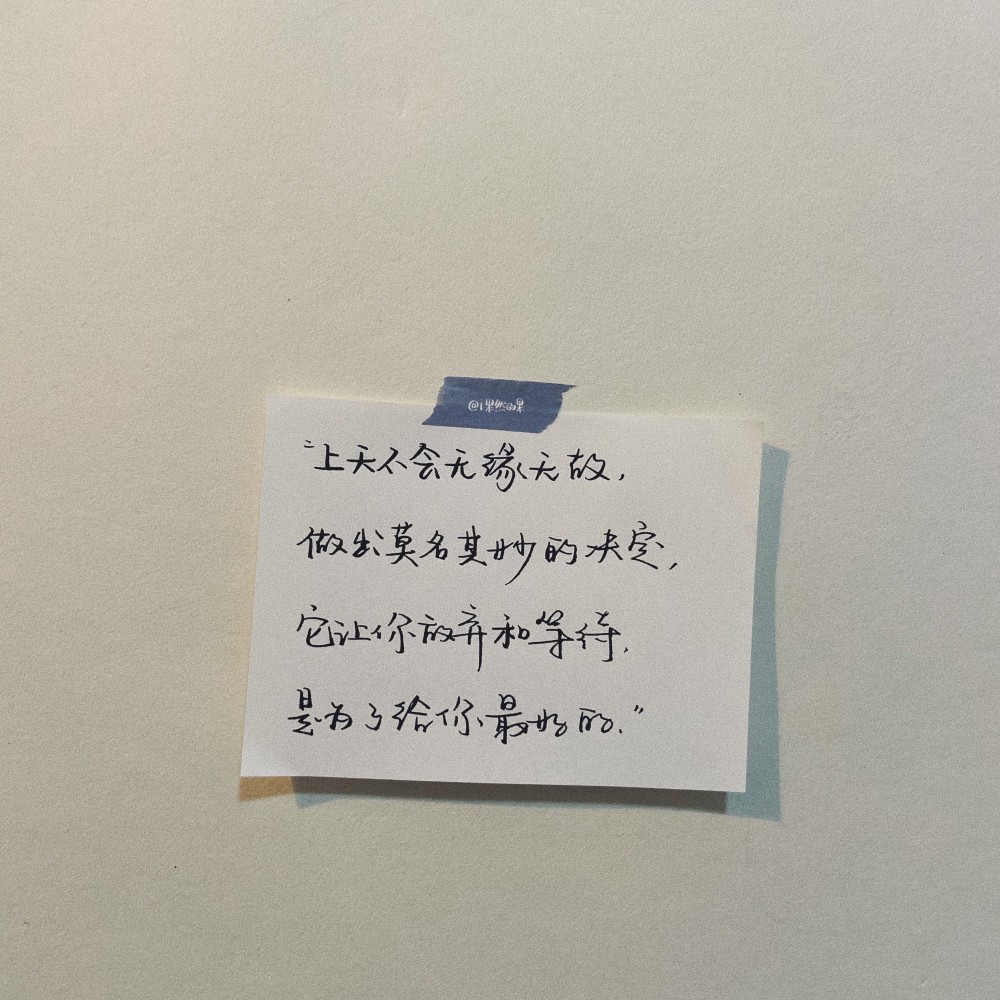 @i果然的果
“上天不会无缘无故,
做出莫名其妙的决定,
它让你放弃和等待,
是为了给你最好的.”